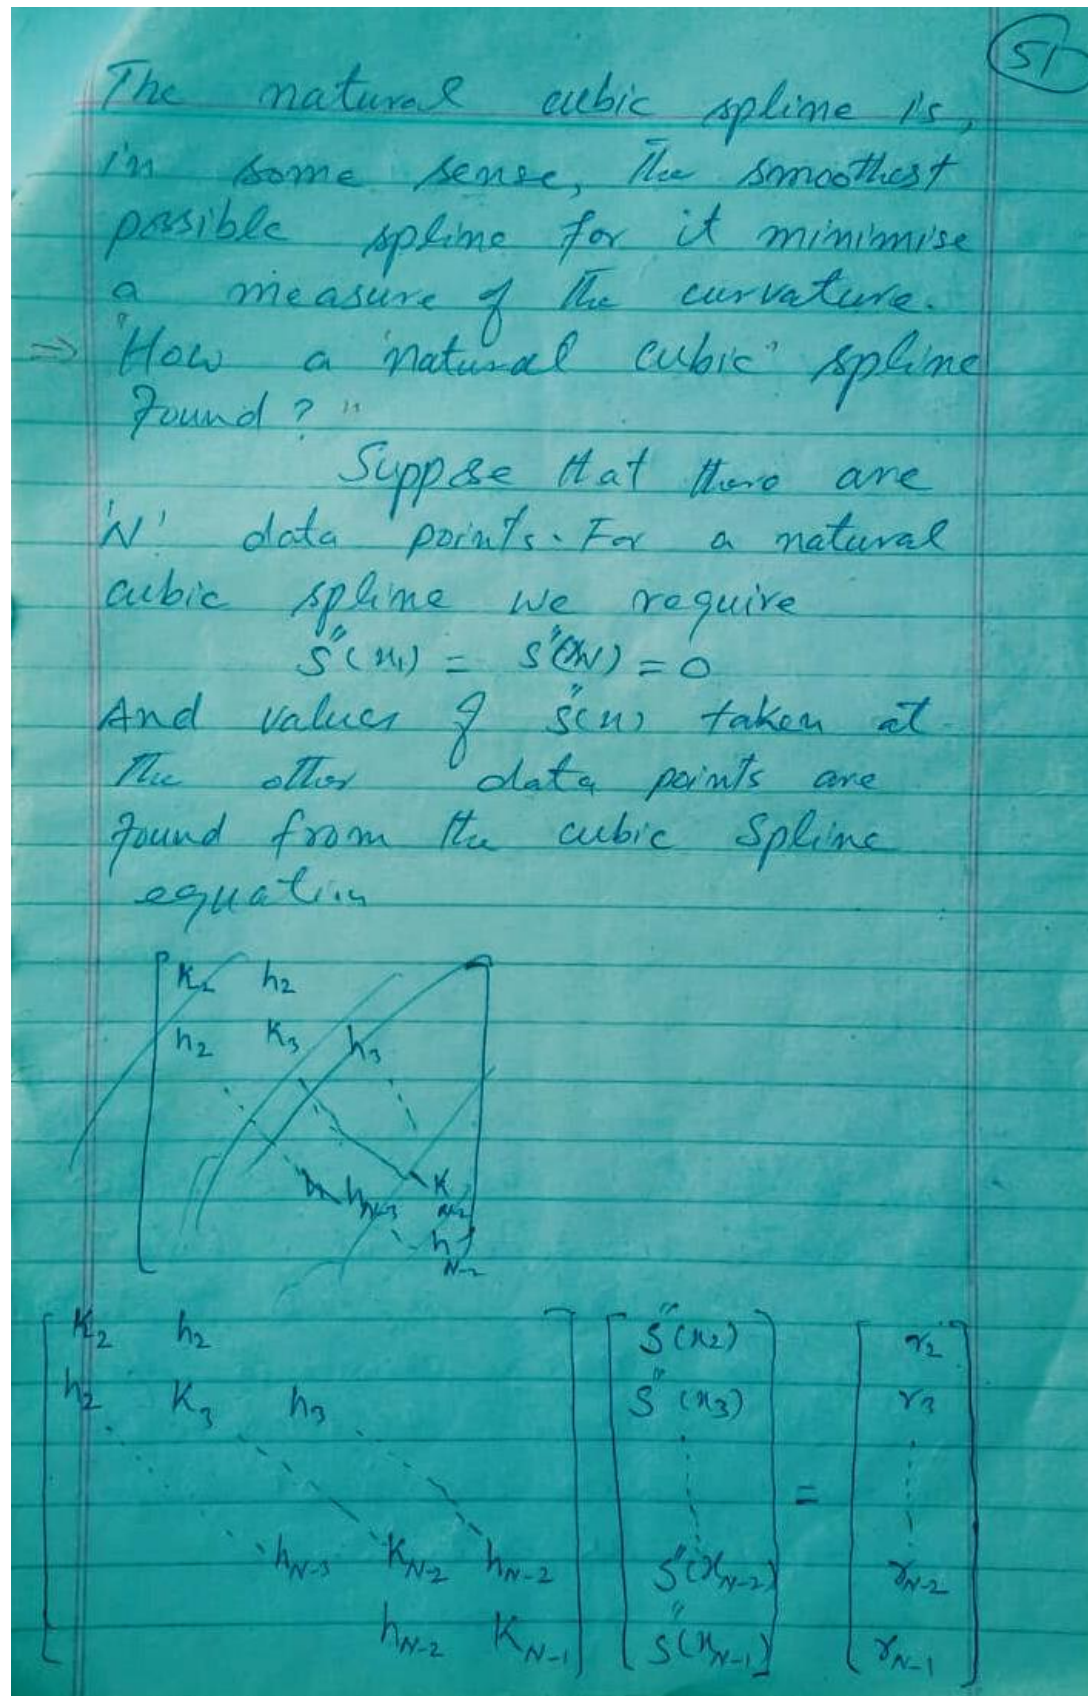 51
The natural cubic spline is,
in some sense, the smoothest
possible spline for it minimise
a measure of the curvature.
⇒ "How a 'natural cubic' spline
found?"
Suppose that there are
'N' data points. For a natural
cubic spline we require
S''(x₁) = S''(x_N) = 0
And values of S''(x) taken at
the other data points are
found from the cubic Spline
equation
K₂ h₂
h₂ K₃ h₃
h_{N-3} K_{N-2}
h_{N-2}
K₂ h₂ S''(x₂) r₂
h₂ K₃ h₃ S''(x₃) r₃
=
h_{N-3} K_{N-2} h_{N-2} S''(x_{N-2}) r_{N-2}
h_{N-2} K_{N-1} S''(x_{N-1}) r_{N-1}